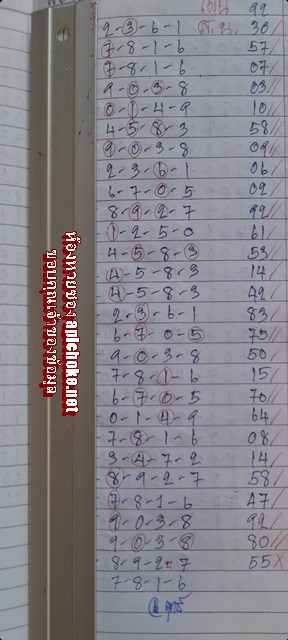 92
2-3-6-1 30
7-8-1-6 57
7-8-1-6 07
9-0-3-8 03
0-1-4-9 10
4-5-8-3 58
9-0-3-8 09
2-3-6-1 06
6-7-0-5 02
8-9-2-7 92
1-2-5-0 61
4-5-8-3 53
4-5-8-3 14
4-5-8-3 42
2-3-6-1 83
6-7-0-5 75
9-0-3-8 50
7-8-1-6 15
6-7-0-5 70
0-1-4-9 64
7-8-1-6 08
3-4-7-2 14
8-9-2-7 58
7-8-1-6 47
9-0-3-8 92
9-0-3-8 80
8-9-2-7 55 x
7-8-1-6
ห้องหวยซอง apichoke.net
ขอบคุณเจ้าของข้อมูล